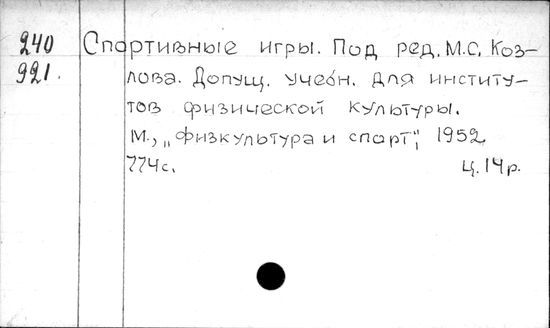 240
921.
Спортивные игры. Под ред. М.С. Коз-
лова. Допущ. учебн. для институ-
тов физической культуры.
М., „Физкультура и спорт", 1952
774с. ц. 14р.